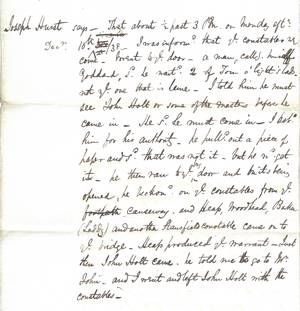 Joseph Hurst says – That about ½ past 3 P.M on Monday yͤ
10th /38 – I was informᵈ that yͤ constables
come – I went to yͤ door – a man, callᵍ himself
Goddard, sᵈ he
not yͤ one that is lame – I told him he must
see John Holt or some of the masters before he
came in – He sᵈ he must come in – I askᵈ
him for his authority – he pullᵈ out a piece of
paper and sᵈ that was not it – but he wᵈ get
it – he then ran to yͤ door and it's being
opened, he beckonᵈ on yͤ constables from yͤ
causeway. and Heap, Woodhead,
and another constable came on to
yͤ bridge – Heap produced yͤ warrant – Just
then John Holt came. he told me to go to Mr
John – and I went and left John Holt with the
constables –